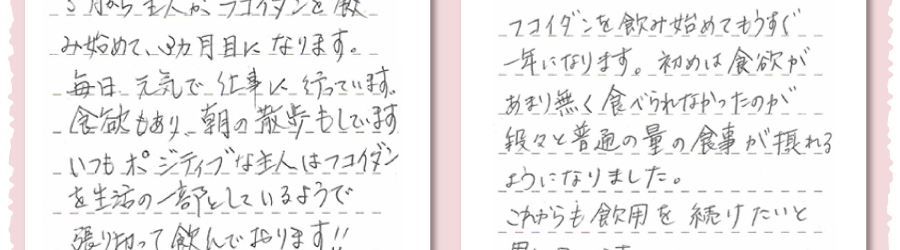 月から主人が、フコイダンを飲
み始めて、3カ月目になります。
毎日、元気で仕事に行っています。
食欲もあり、朝の散歩もしています
いつもポジティブな主人はフコイダン
を生活の一部としているようで
張り切って飲んでおります!!
フコイダンを飲み始めてもうすぐ
一年になります。初めは食欲が
あまり無く食べられなかったのが
段々と普通の量の食事が摂れる
ようになりました。
これからも飲用を続けたいと